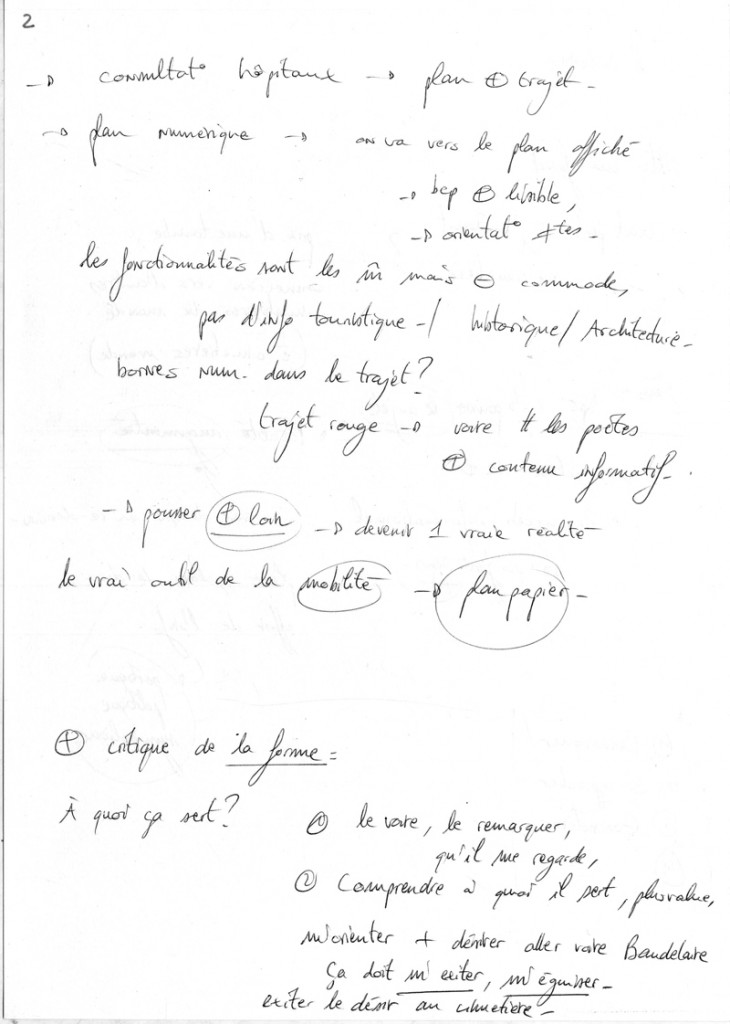 2
→ consultat° hôpitaux → plan ⊕ trajet -
→ plan numérique → on va vers le plan affiché
→ bcp ⊕ lisible,
→ orientat° ≠tes -
les fonctionnalités sont les m̂ mais ⊖ commode,
pas d'info touristique - / historique / Architecture -
bornes num. dans le trajet ?
trajet rouge → voire # les poètes
⊕ contenu informatif -
→ pousser ⊕ loin → devenir 1 vraie réalité
le vrai outil de la mobilité → plan papier -
⊕ critique de la forme =
À quoi ça sert ?
① le voire, le remarquer,
qu'il me regarde,
② Comprendre à quoi il sert, plusvalue,
m'orienter + désirer aller voire Baudelaire
ça doit m'exiter, m'éguiser -
exiter le désir au cimetière -